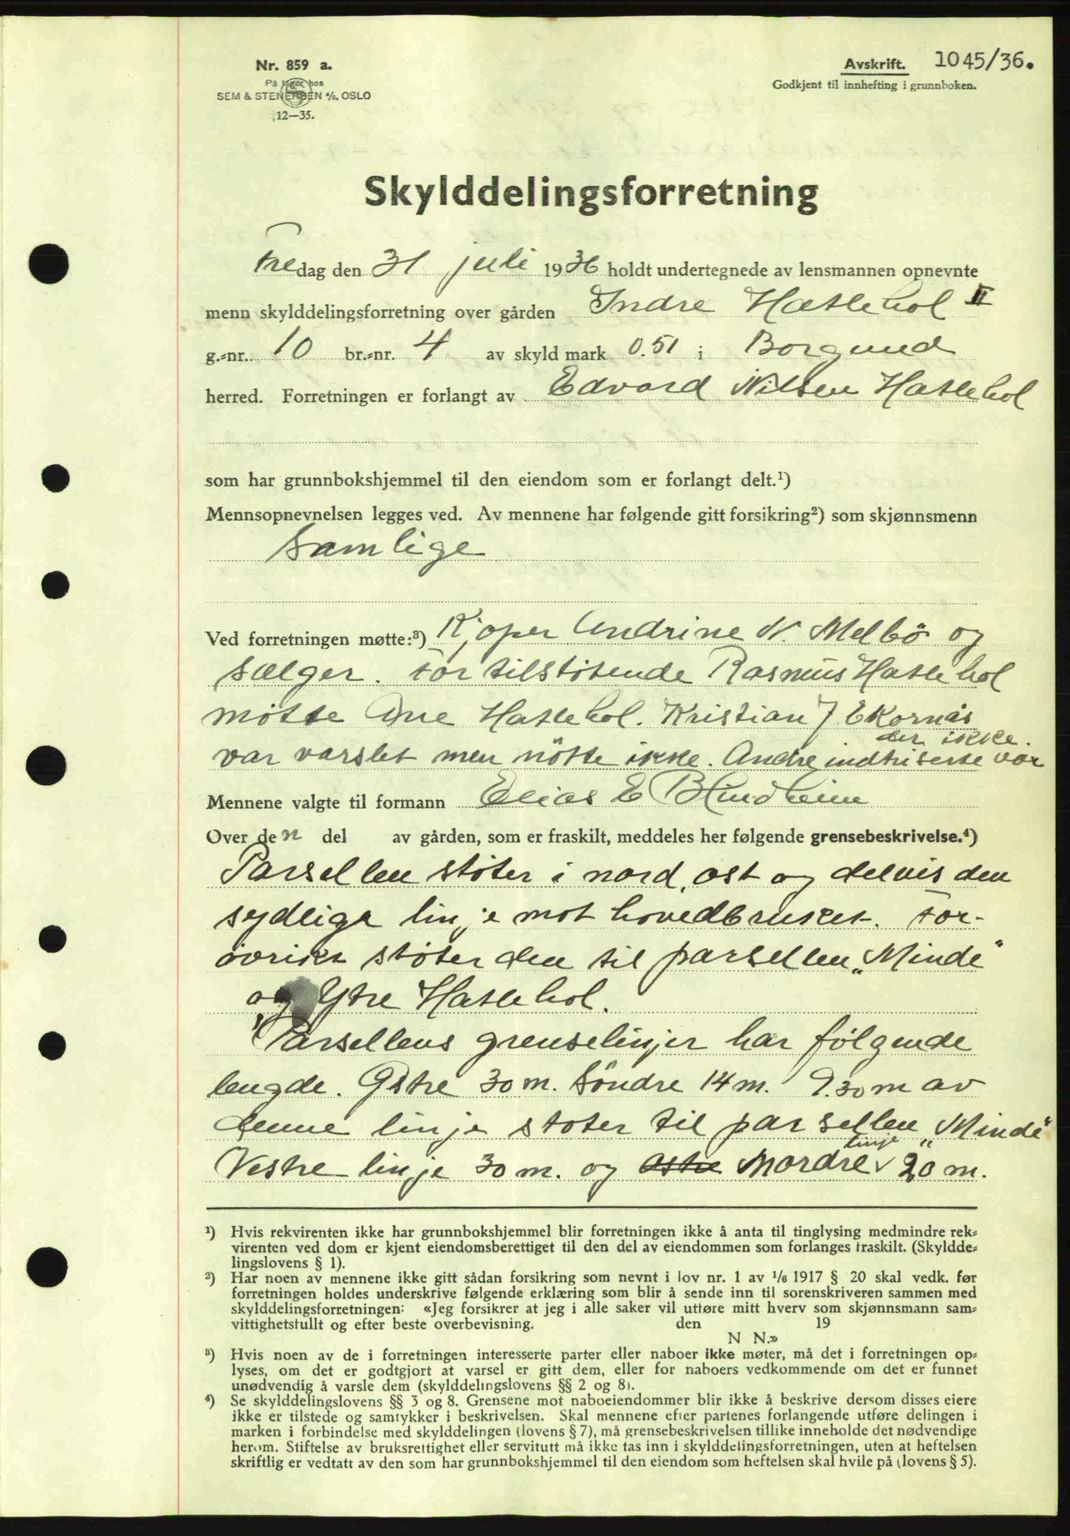 Nr. 859 a.
På lager hos
SEM & STENERSEN A/S, OSLO
12—35.
Avskrift. 1045/36.
Godkjent til innhefting i grunnboken.
Skylddelingsforretning
Fredag den 31 juli 1936 holdt undertegnede av lensmannen opnevnte
menn skylddelingsforretning over gården Indre Hatlehol II
g.-nr. 10 br.-nr. 4 av skyld mark 0.51 i Borgund
herred. Forretningen er forlangt av Edvard Nilsen Hatlehol
som har grunnbokshjemmel til den eiendom som er forlangt delt.¹)
Mennsopnevnelsen legges ved. Av mennene har følgende gitt forsikring²) som skjønnsmenn
Samlige
Ved forretningen møtte:³) Kjøper Andrine N. Melbö og
sælger. For tilstøtende Rasmus Hatlehol
møtte Ane Hatlehol. Kristian J Ekornås
der ikke.
var varslet men møtte ikke. Andre indtriserte var
Mennene valgte til formann Elias E Blindheim
Over den del av gården, som er fraskilt, meddeles her følgende grensebeskrivelse.⁴)
Parsellen støter i nord, øst og delvis den
sydlige linje mot hovedbruket. For-
øvrikt støter den til parsellen „Minde"
og Ytre Hatlehol.
Parsellens grenselinjer har følgende
lengde. Østre 30 m. Söndre 14 m. 9.30 m av
denne linje støter til parsellen „Minde"
Vestre linje 30 m. og østre Nordre linje 20 m.
¹) Hvis rekvirenten ikke har grunnbokshjemmel blir forretningen ikke å anta til tinglysing medmindre rek-
virenten ved dom er kjent eiendomsberettiget til den del av eiendommen som forlanges fraskilt. (Skyldde-
lingslovens § 1).
²) Har noen av mennene ikke gitt sådan forsikring som nevnt i lov nr. 1 av 1/6 1917 § 20 skal vedk. før
forretningen holdes underskrive følgende erklæring som blir å sende inn til sorenskriveren sammen med
skylddelingsforretningen: «Jeg forsikrer at jeg i alle saker vil utføre mitt hverv som skjønnsmann sam-
vittighetsfullt og efter beste overbevisning. den 19
N N.»
³) Hvis noen av de i forretningen interesserte parter eller naboer ikke møter, må det i forretningen op-
lyses, om det er godtgjort at varsel er gitt dem, eller for naboers vedkommende om det er funnet
unødvendig å varsle dem (skylddelingslovens §§ 2 og 8).
⁴) Se skylddelingslovens §§ 3 og 8. Grensene mot naboeiendommer blir ikke å beskrive dersom disses eiere
ikke er tilstede og samtykker i beskrivelsen. Skal mennene efter partenes forlangende utføre delingen i
marken i forbindelse med skylddelingen (lovens § 7), må grensebeskrivelsen tillike inneholde det nødvendige
herom. Stiftelse av bruksrettighet eller servitutt må ikke tas inn i skylddelingsforretningen, uten at heftelsen
skriftlig er vedtatt av den som har grunnbokshjemmel til den eiendom som heftelsen skal hvile på (lovens § 5).